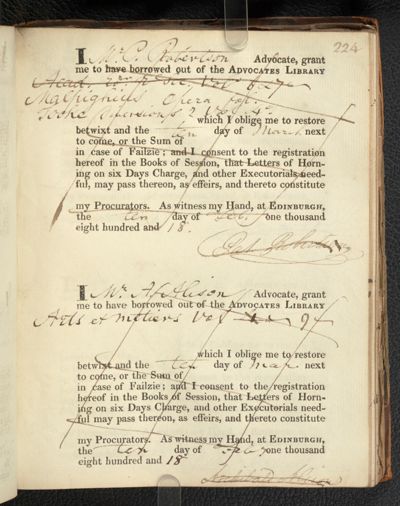 224
I Mr P. Robertson Advocate, grant
me to have borrowed out of the ADVOCATES LIBRARY
Acad
Malpighii Opera
2 Vols
which I oblige me to restore
betwixt and the ten day of March next
to come, or the Sum of
in case of Failzie; and I consent to the registration
hereof in the Books of Session, that Letters of Horn-
ing on six Days Charge, and other Executorials need-
ful, may pass thereon, as effeirs, and thereto constitute
my Procurators. As witness my Hand, at EDINBURGH,
the ten day of one thousand
eight hundred and 18
I Mr A. Alison Advocate, grant
me to have borrowed out of the ADVOCATES LIBRARY
Arts et metiers Vol
which I oblige me to restore
betwixt and the ten day of next
to come, or the Sum of
in case of Failzie; and I consent to the registration
hereof in the Books of Session, that Letters of Horn-
ing on six Days Charge, and other Executorials need-
ful may pass thereon, as effeirs, and thereto constitute
my Procurators. As witness my Hand, at EDINBURGH,
the ten day of one thousand
eight hundred and 18
Archibald Alison